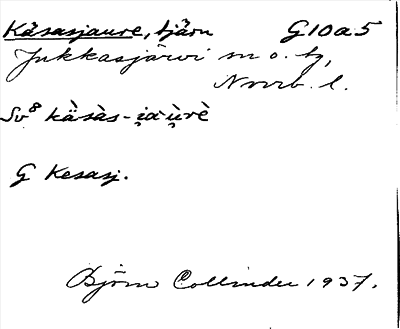 Käsasjaure, tjärn G10a5
Jukkasjärvi sn o. tg,
Norrb. l.
Sv⁸ kä̀sàs-i̯au̯rè
G Kesasj.
Björn Collinder 1937.